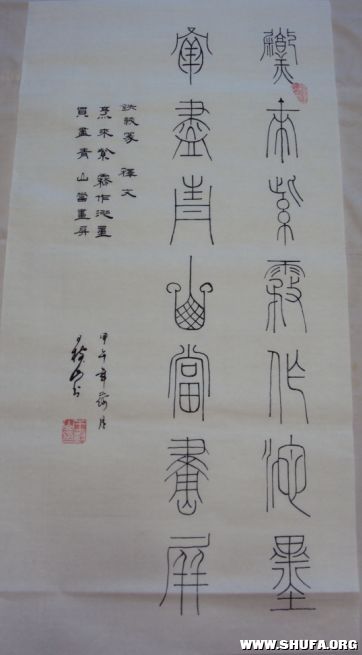 來紫霧作池墨
買盡青山當畫屏
篆 釋文
來紫霧作池墨
買盡青山當畫屏
甲午年荷月
WWW.SHUFA.ORG